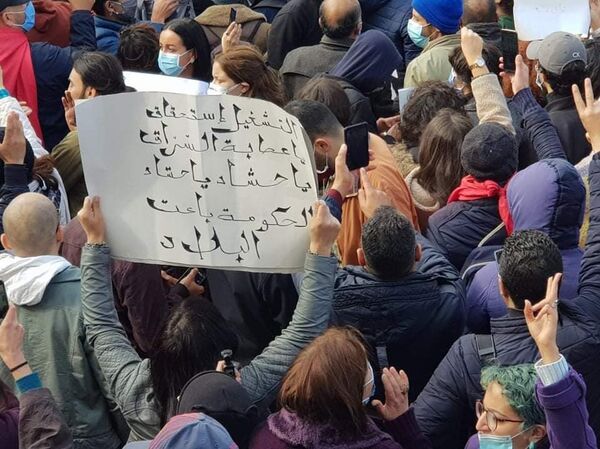 التشغيل إستحقاق
يا عصابة السراق
يا حشاد يا حشاد
الحكومة باعت
البلاد